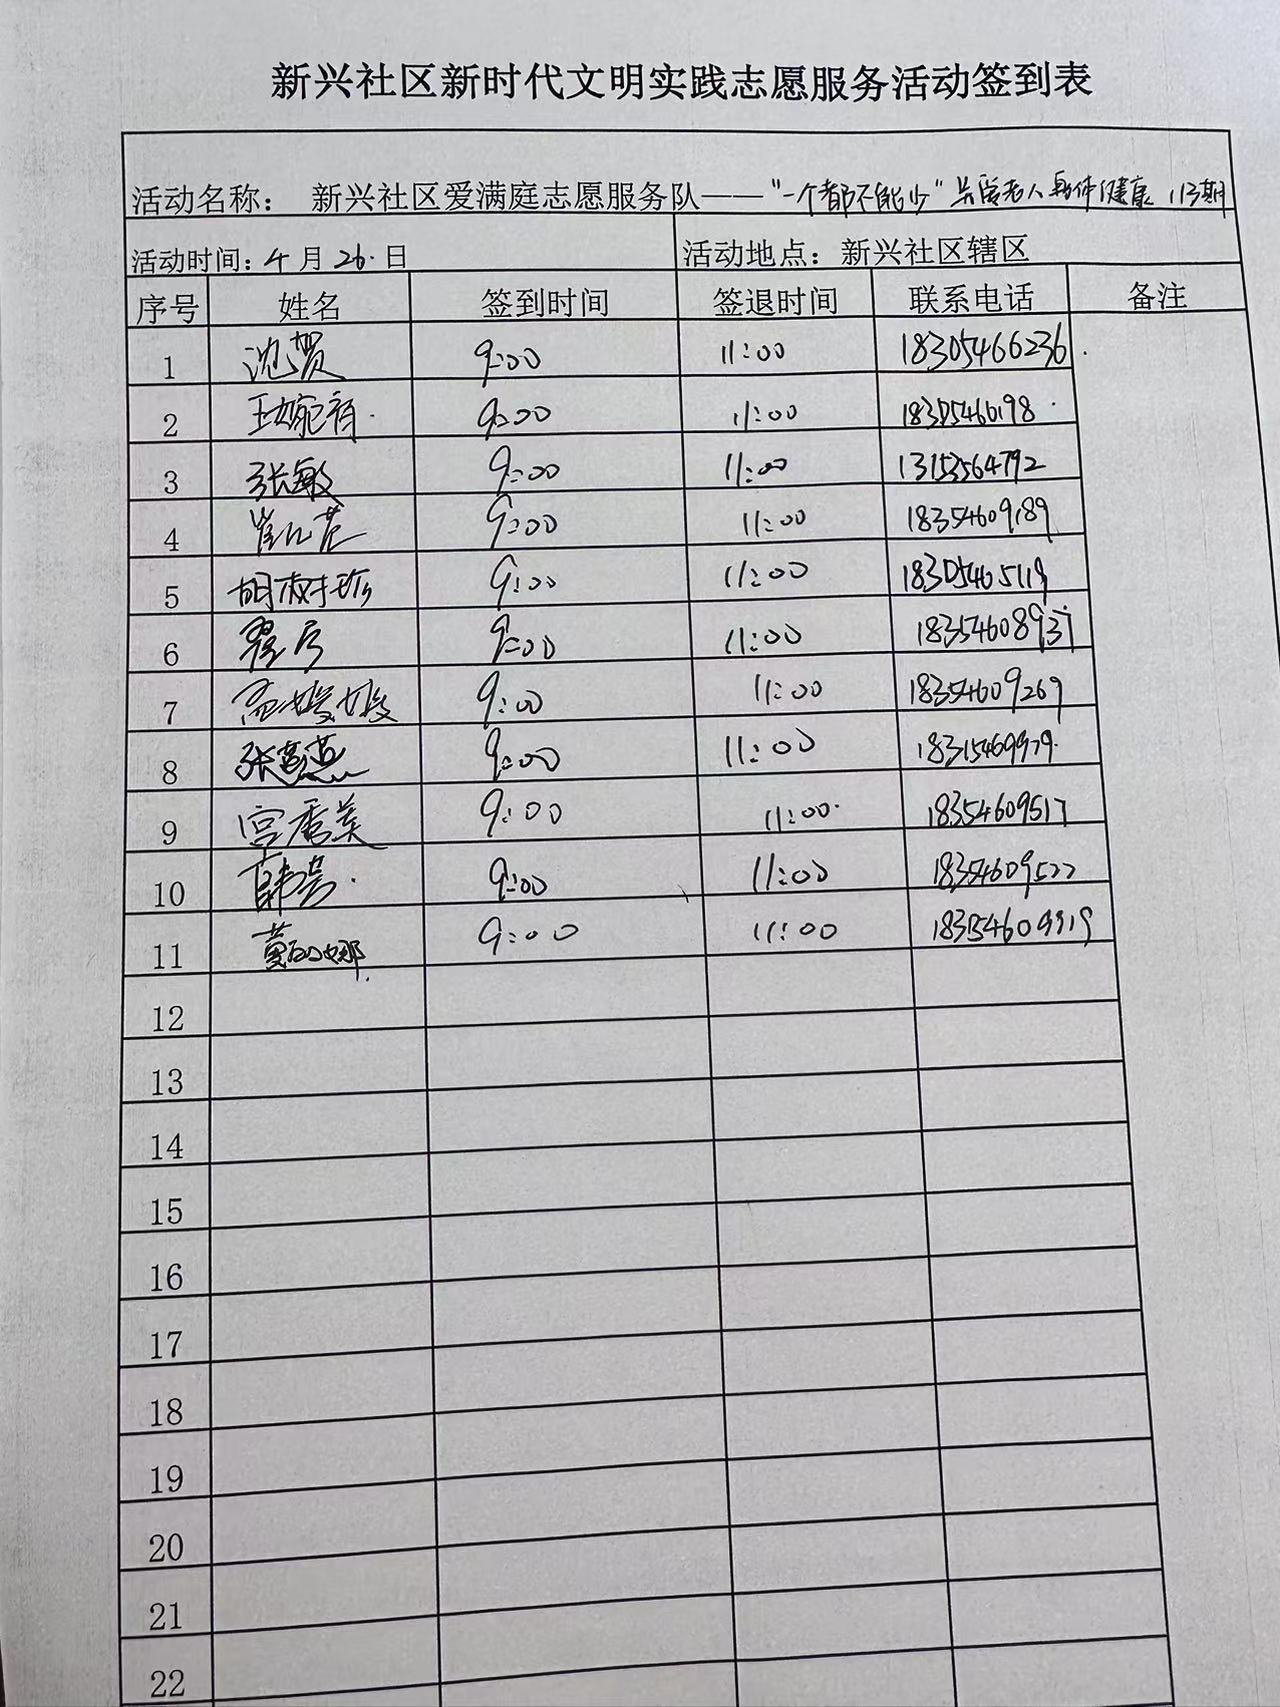 新兴社区新时代文明实践志愿服务活动签到表
活动名称： 新兴社区爱满庭志愿服务队——"一个都不能少"关爱老人身体健康 113期
活动时间：4月26.日 活动地点：新兴社区辖区
序号 姓名 签到时间 签退时间 联系电话 备注
1 沈贺 9:00 11:00 18305466236
2 王婉 9:00 11:00 18305460198
3 张敏 9:00 11:00 13153564792
4 崔 9:00 11:00 18354609189
5 胡树珍 9:00 11:00 18305465119
6 翟 9:00 11:00 18354608937
7 孟媛媛 9:00 11:00 18354609269
8 张 9:00 11:00 18315469979
9 宫秀美 9:00 11:00 18354609517
10 韩 9:00 11:00 18354609522
11 黄娜 9:00 11:00 18354609919
12
13
14
15
16
17
18
19
20
21
22